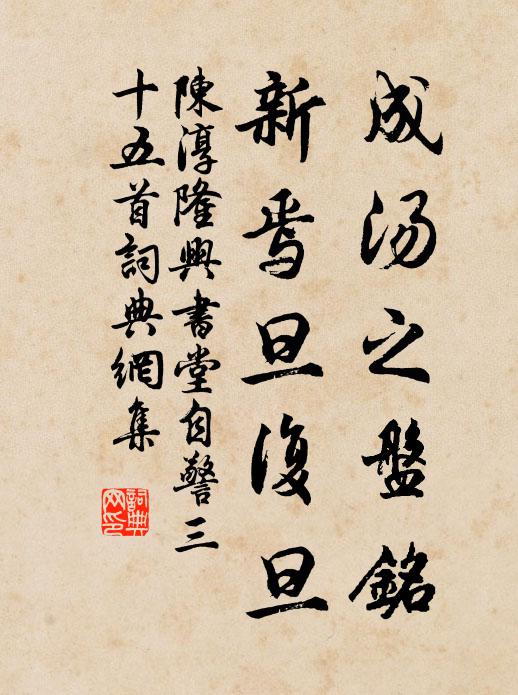 成湯之盤銘
新焉旦復旦
陳淳隆興書堂自警三
十五首詞典網集
詞典
网印